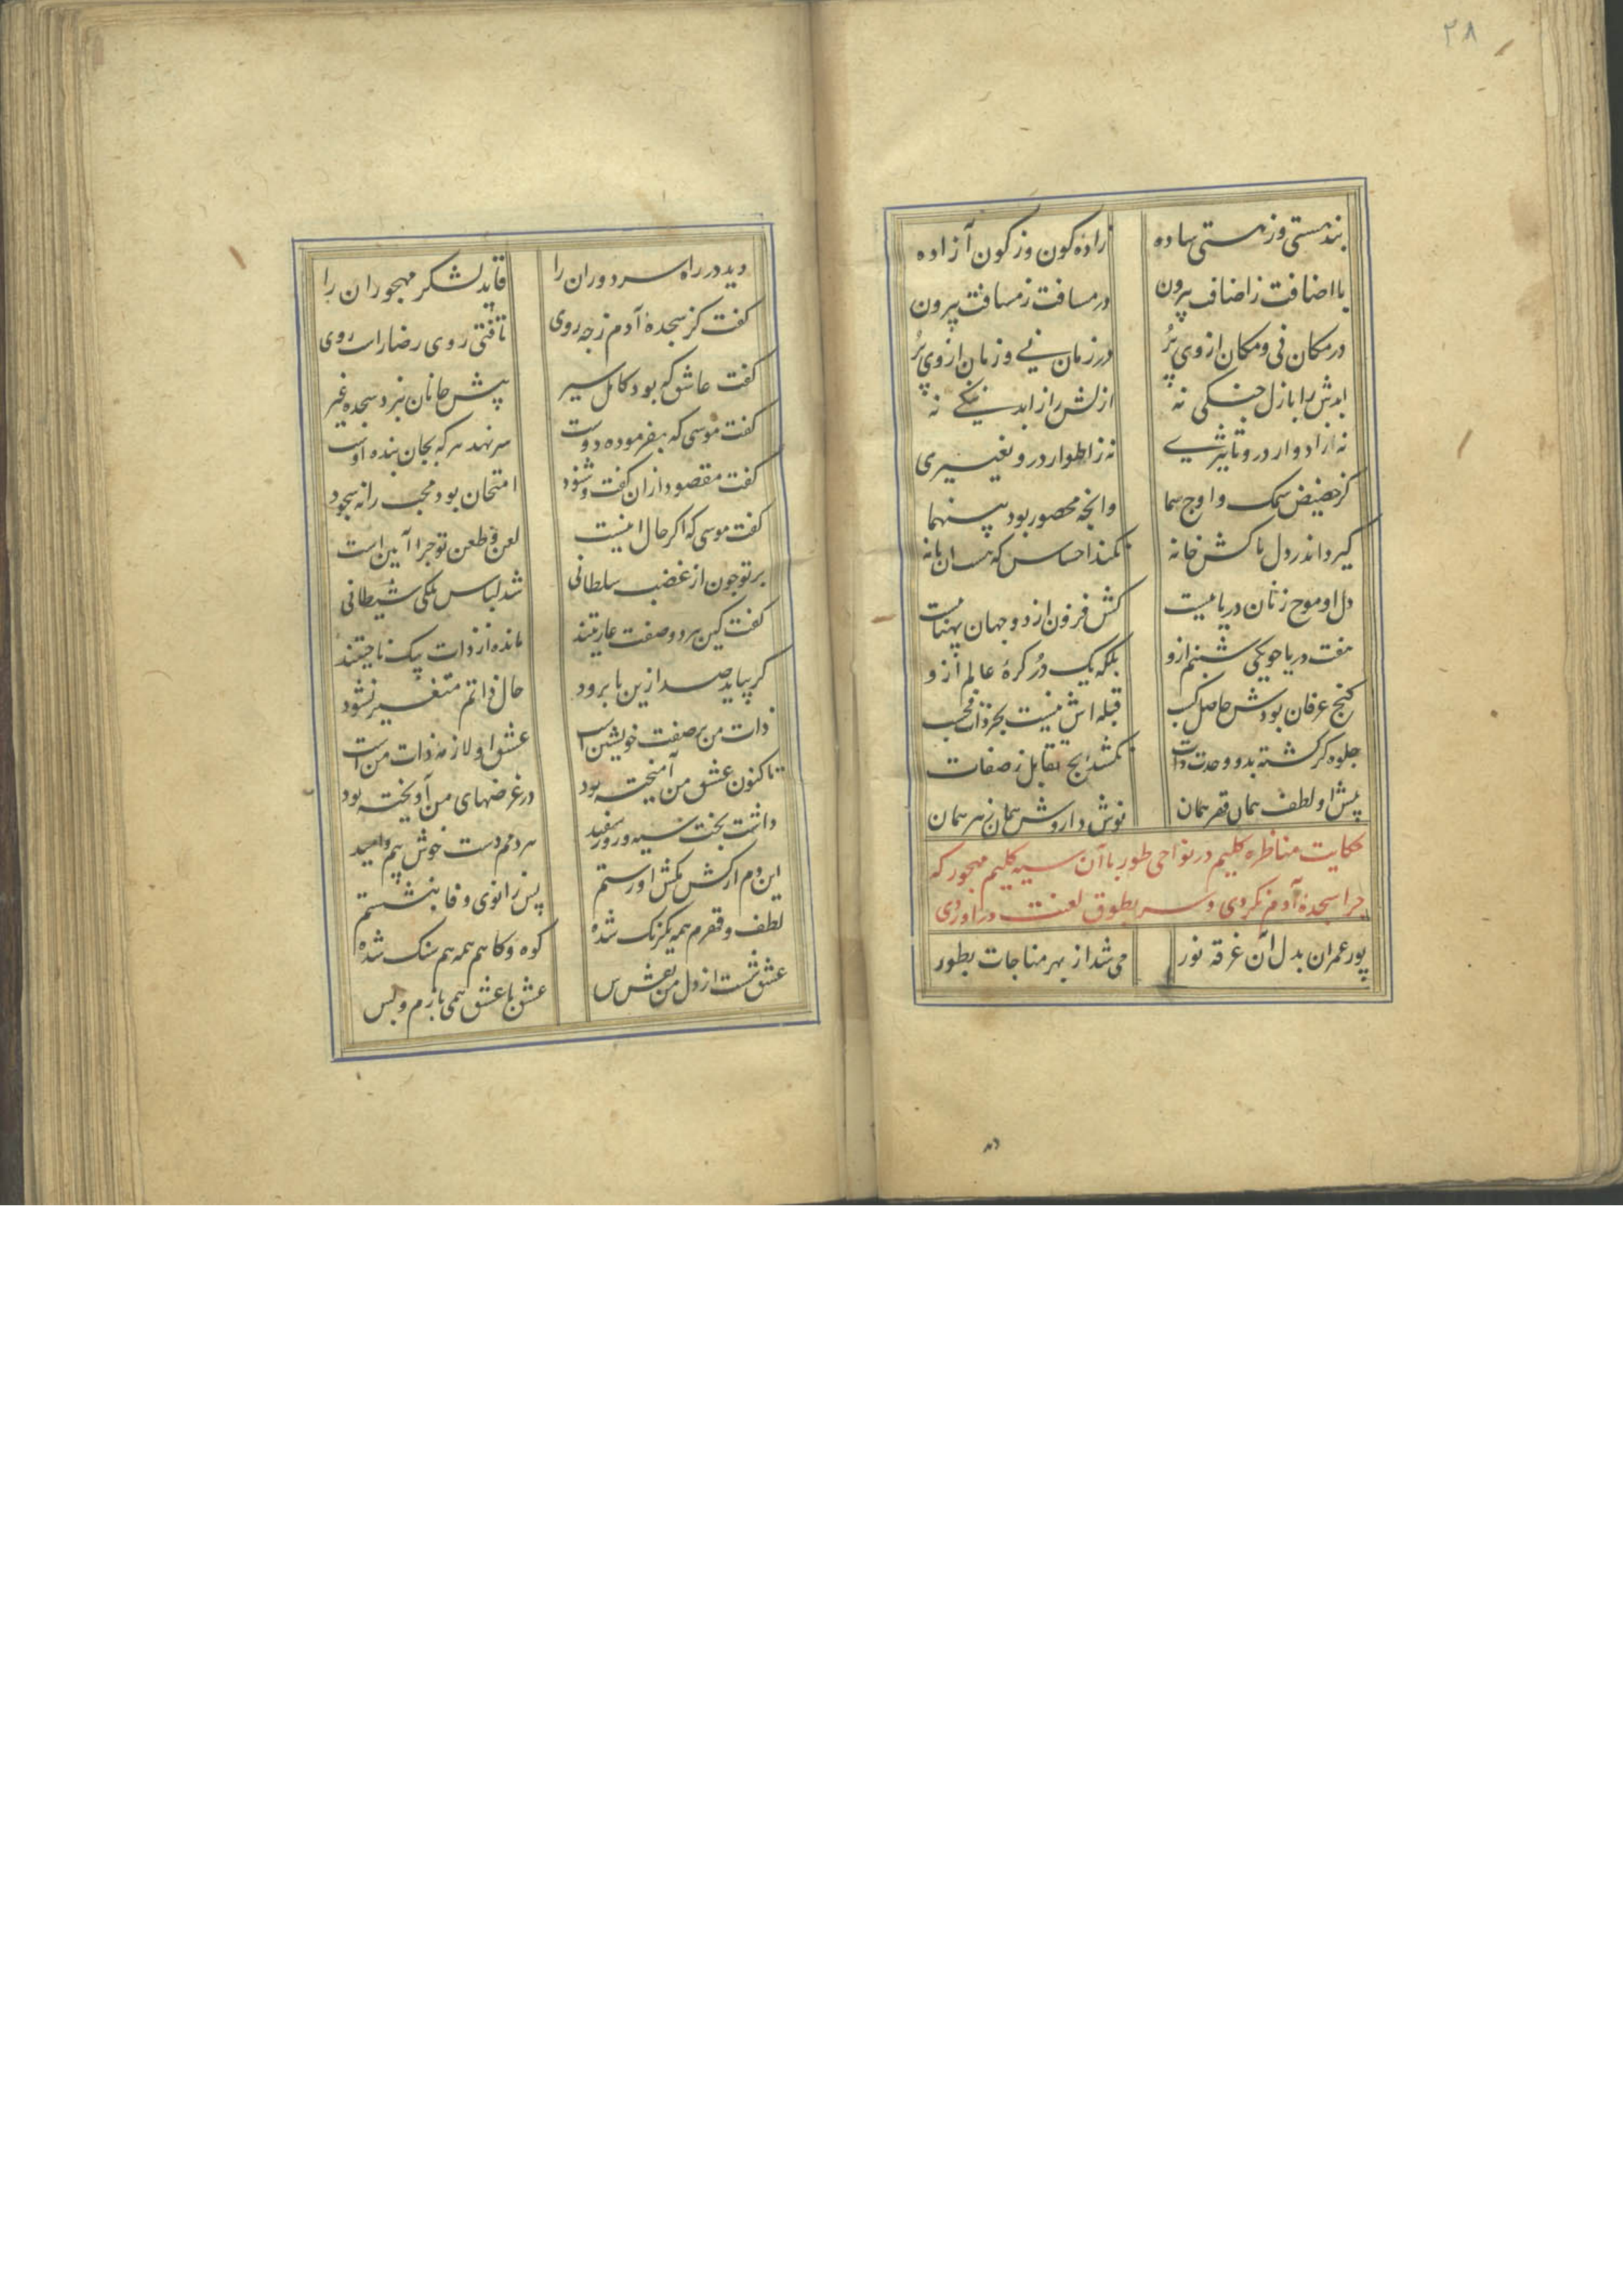 ۲۸
بند هستی وز هستی ساده زاده کون وز کون آزاده
با اضافت ز اضافت بیرون در مسافت ز مسافت بیرون
در مکان نی و مکان از وی پُر در زمان نی و زمان از وی پُر
ابدش را بازل جنکی نه ازلش را ز ابد ننکی نه
نه از ادوار درو تاثیری نه ز اطوار درو تغییری
کز حضیض سمک و اوج سما وانچه محصور بود بینهما
کیرد اندر دل پاکش خانه نکند احساس که هست آن یا نه
دل او موج زنان دریاییست کش فزون از دو جهان پهناییست
هفت دریا چو یکی شبنم ازو بلکه یک در کرهٔ عالم ازو
کنج عرفان بودش حاصل کسب قبله اش نیست بجز ذات فحسب
جلوه کر کشته بدو وحدت ذات نکشد رنج تقابل ز صفات
پیش او لطف همان قهر همان نوش داروش همان زهر همان
حکایت مناظره کلیم در نواحی طور با آن سیه کلیم مهجور که
چرا سجدهٔ آدم نکردی و سر بطوق لعنت در آوردی
پور عمران بدل آن غرقه نور می شد از بهر مناجات بطور
دید
دید در راه سر دوران را قاید لشکر مهجوران را
کفت کز سجدهٔ آدم ز چه روی تافتی روی رضا راست روی
کفت عاشق که بود کامل سیر پیش جانان نبرد سجده غیر
کفت موسی که بفرموده دوست سر نهد هر که بجان بنده اوست
کفت مقصود از ان کفت و شنود امتحان بود محب را نه سجود
کفت موسی که اکر حال اینست لعن و طعن تو چرا آیین است
بر تو چون از غضب سلطانی شد لباس ملکی شیطانی
کفت کین هر دو صفت عاریتند مانده از ذات بیک ناحیتند
کر بیاید صد ازین یا برود حال ذاتم متغیر نشود
ذات من بر صفت خویشتن است عشق او لازمه ذات من است
تاکنون عشق من آمیخته بود در غرضهای من آویخته بود
داشت بخت سیه و روز سفید هر دمم دست خوش بیم و امید
این دم از کش مکش او رستم پس زانوی وفا بنشستم
لطف و قهرم همه یکرنک شده کوه و کاهم همه هم سنک شده
عشق شست از دل من نقش هوس عشق با عشق همی بازم و بس